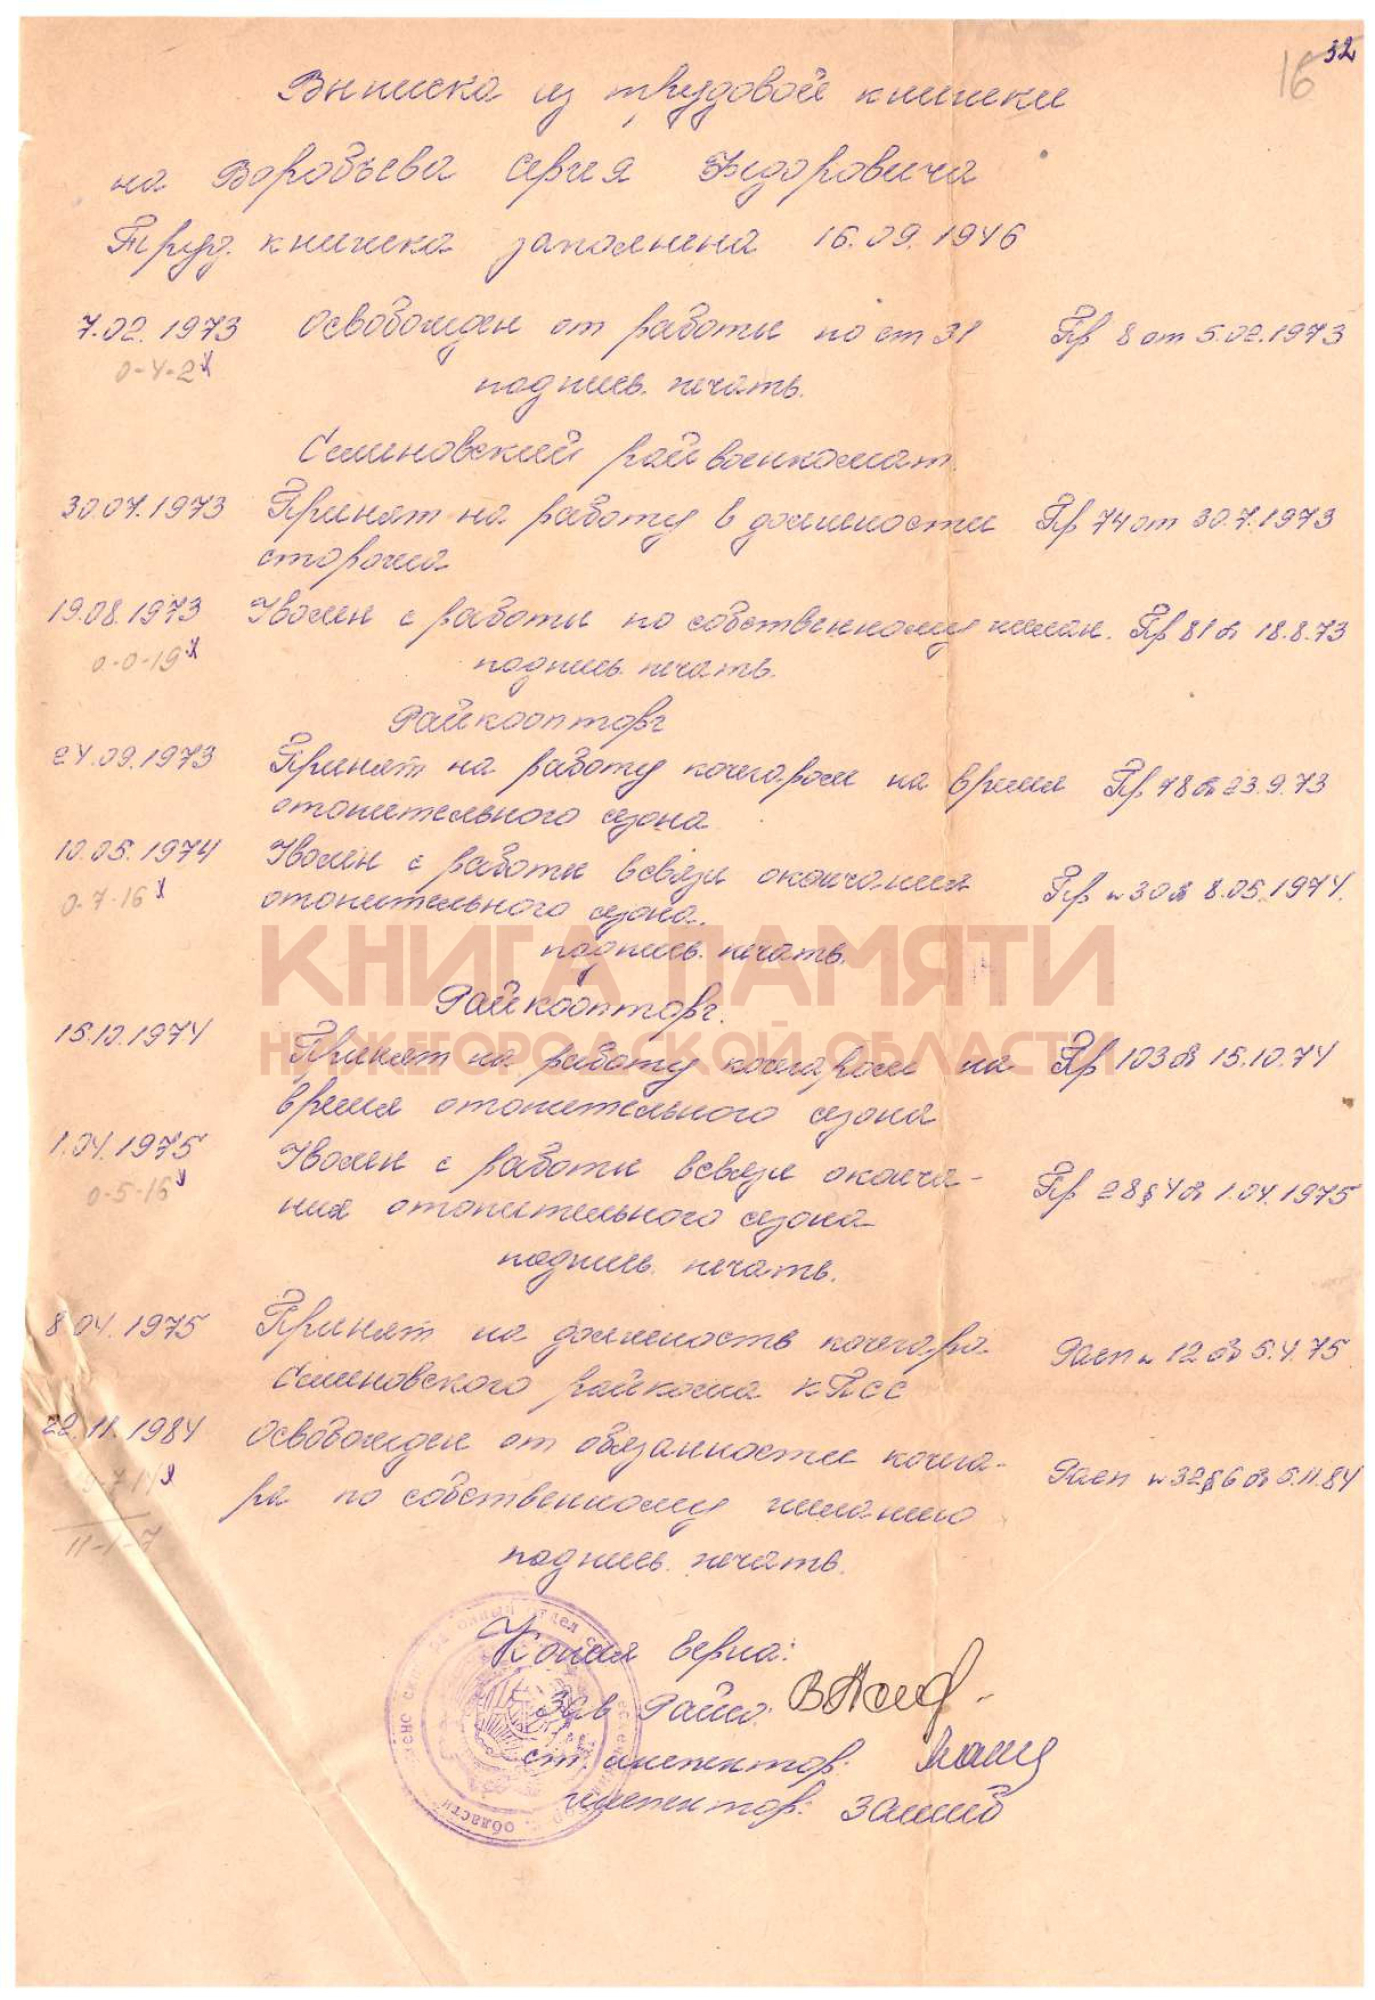 32
16
Выписка из трудовой книжки
на Воробьева Сергея Федоровича
Труд. книжка заполнена 16.09.1946
7.02.1973 Освобожден от работы по ст 31 Пр 8 от 5.02.1973
0-4-2
подпись. печать.
Семеновский райвоенкомат
30.07.1973 Принят на работу в должности Пр 74 от 30.7.1973
сторожа
19.08.1973 Уволен с работы по собственному желан. Пр 81 от 18.8.73
0-0-19
подпись. печать.
Райкоопторг
24.09.1973 Принят на работу кочегаром на время Пр 78 от 23.9.73
отопительного сезона
10.05.1974 Уволен с работы всвязи окончания Пр № 30 от 8.05.1974.
0-7-16
отопительного сезона.
подпись. печать.
КНИГА ПАМЯТИ
НИЖЕГОРОДСКОЙ ОБЛАСТИ
Райкоопторг.
15.10.1974 Принят на работу кочегаром на Пр 103 от 15.10.74
время отопительного сезона
1.04.1975 Уволен с работы всвязи оконча-
0-5-16
ния отопительного сезона Пр 28 § 4 от 1.04.1975
подпись. печать.
8.04.1975 Принят на должность кочегара Расп № 12 от 5.4.75
Семеновского райкома КПСС
22.11.1984 Освобожден от обязанностей кочега-
ра по собственному желанию Расп № 32 § 6 от 5.11.84
11-1-7
подпись. печать.
Копия верна:
Зав Райсо:
ст. инспектор:
инспектор:
области